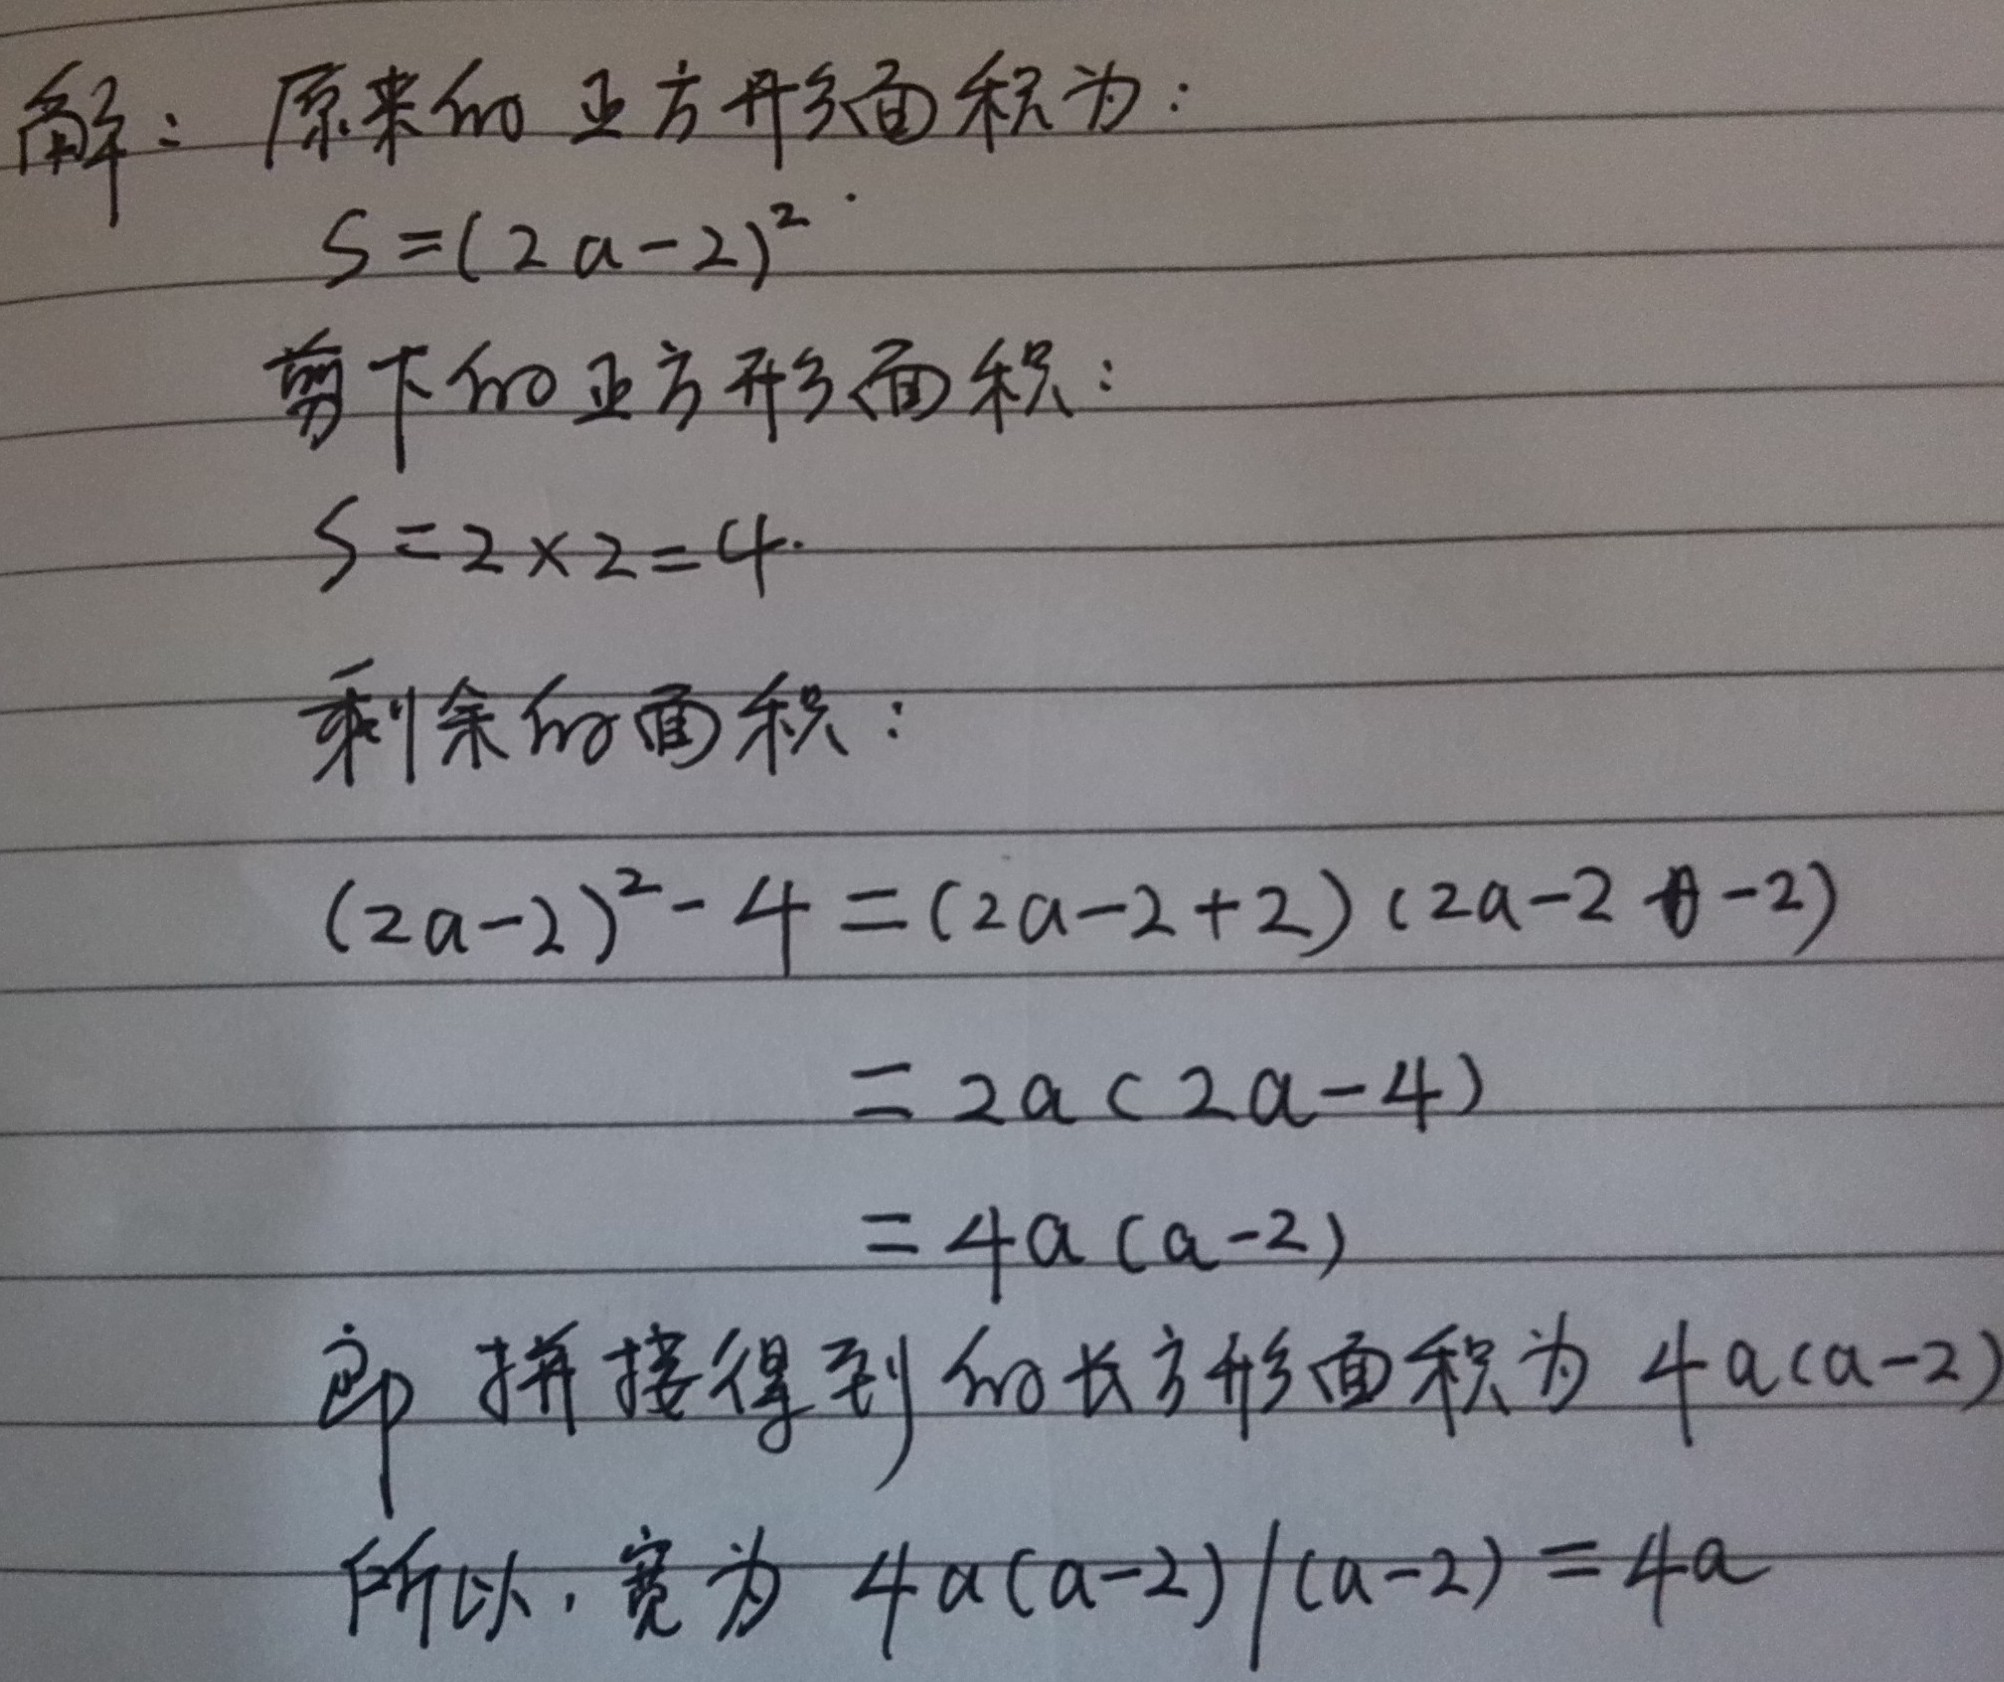 解：原来的正方形面积为：
S=(2a-2)²
剪下的正方形面积：
S=2×2=4.
剩余的面积：
(2a-2)²-4=(2a-2+2)(2a-2-2)
=2a(2a-4)
=4a(a-2)
即拼接得到的长方形面积为4a(a-2)
所以，宽为 4a(a-2)/(a-2)=4a